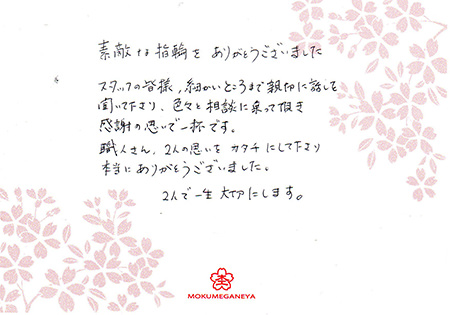 素敵な指輪を ありがとうございました
スタッフの皆様，細かいところまで親切に話して
聞いて下さり、色々と相談に乗って頂き
感謝の思いで一杯です。
職人さん、2人の思いを カタチにして下さり
本当にありがとうございました。
2人で一生 大切にします。
MOKUMEGANEYA